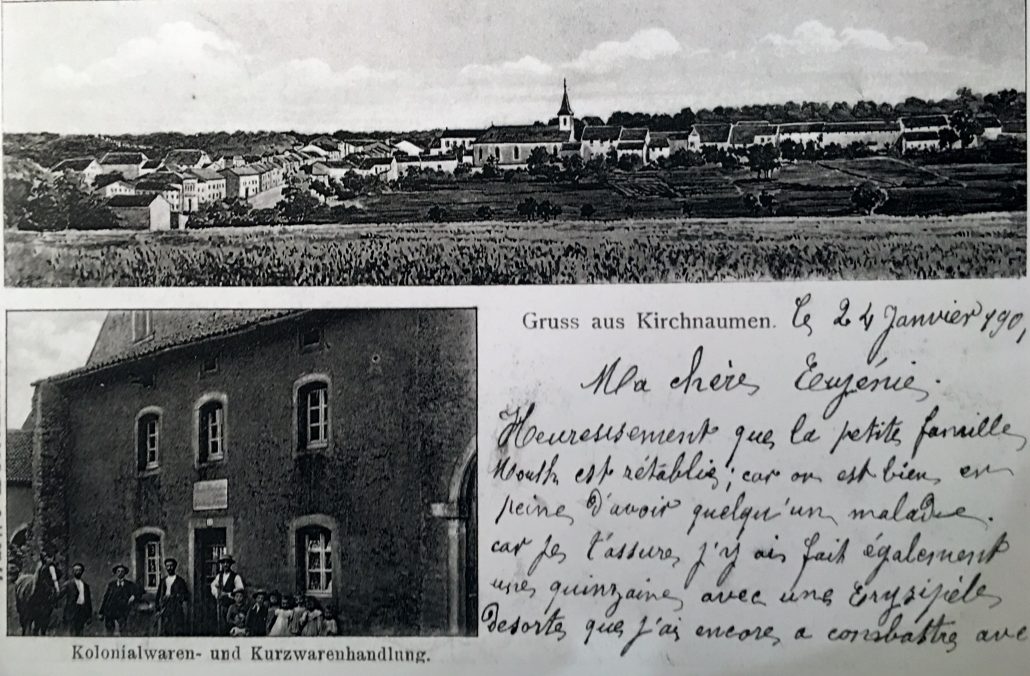 Gruss aus Kirchnaumen.
le 24 Janvier 190
Ma chère Eugénie.
Heureusement que la petite famille
est rétablie; car on est bien en
peine d'avoir quelqu'un malade.
car je t'assure j'y ai fait également
une quinzaine avec une Erysipèle
desorte que j'ai encore a combattre avec
Kolonialwaren- und Kurzwarenhandlung.